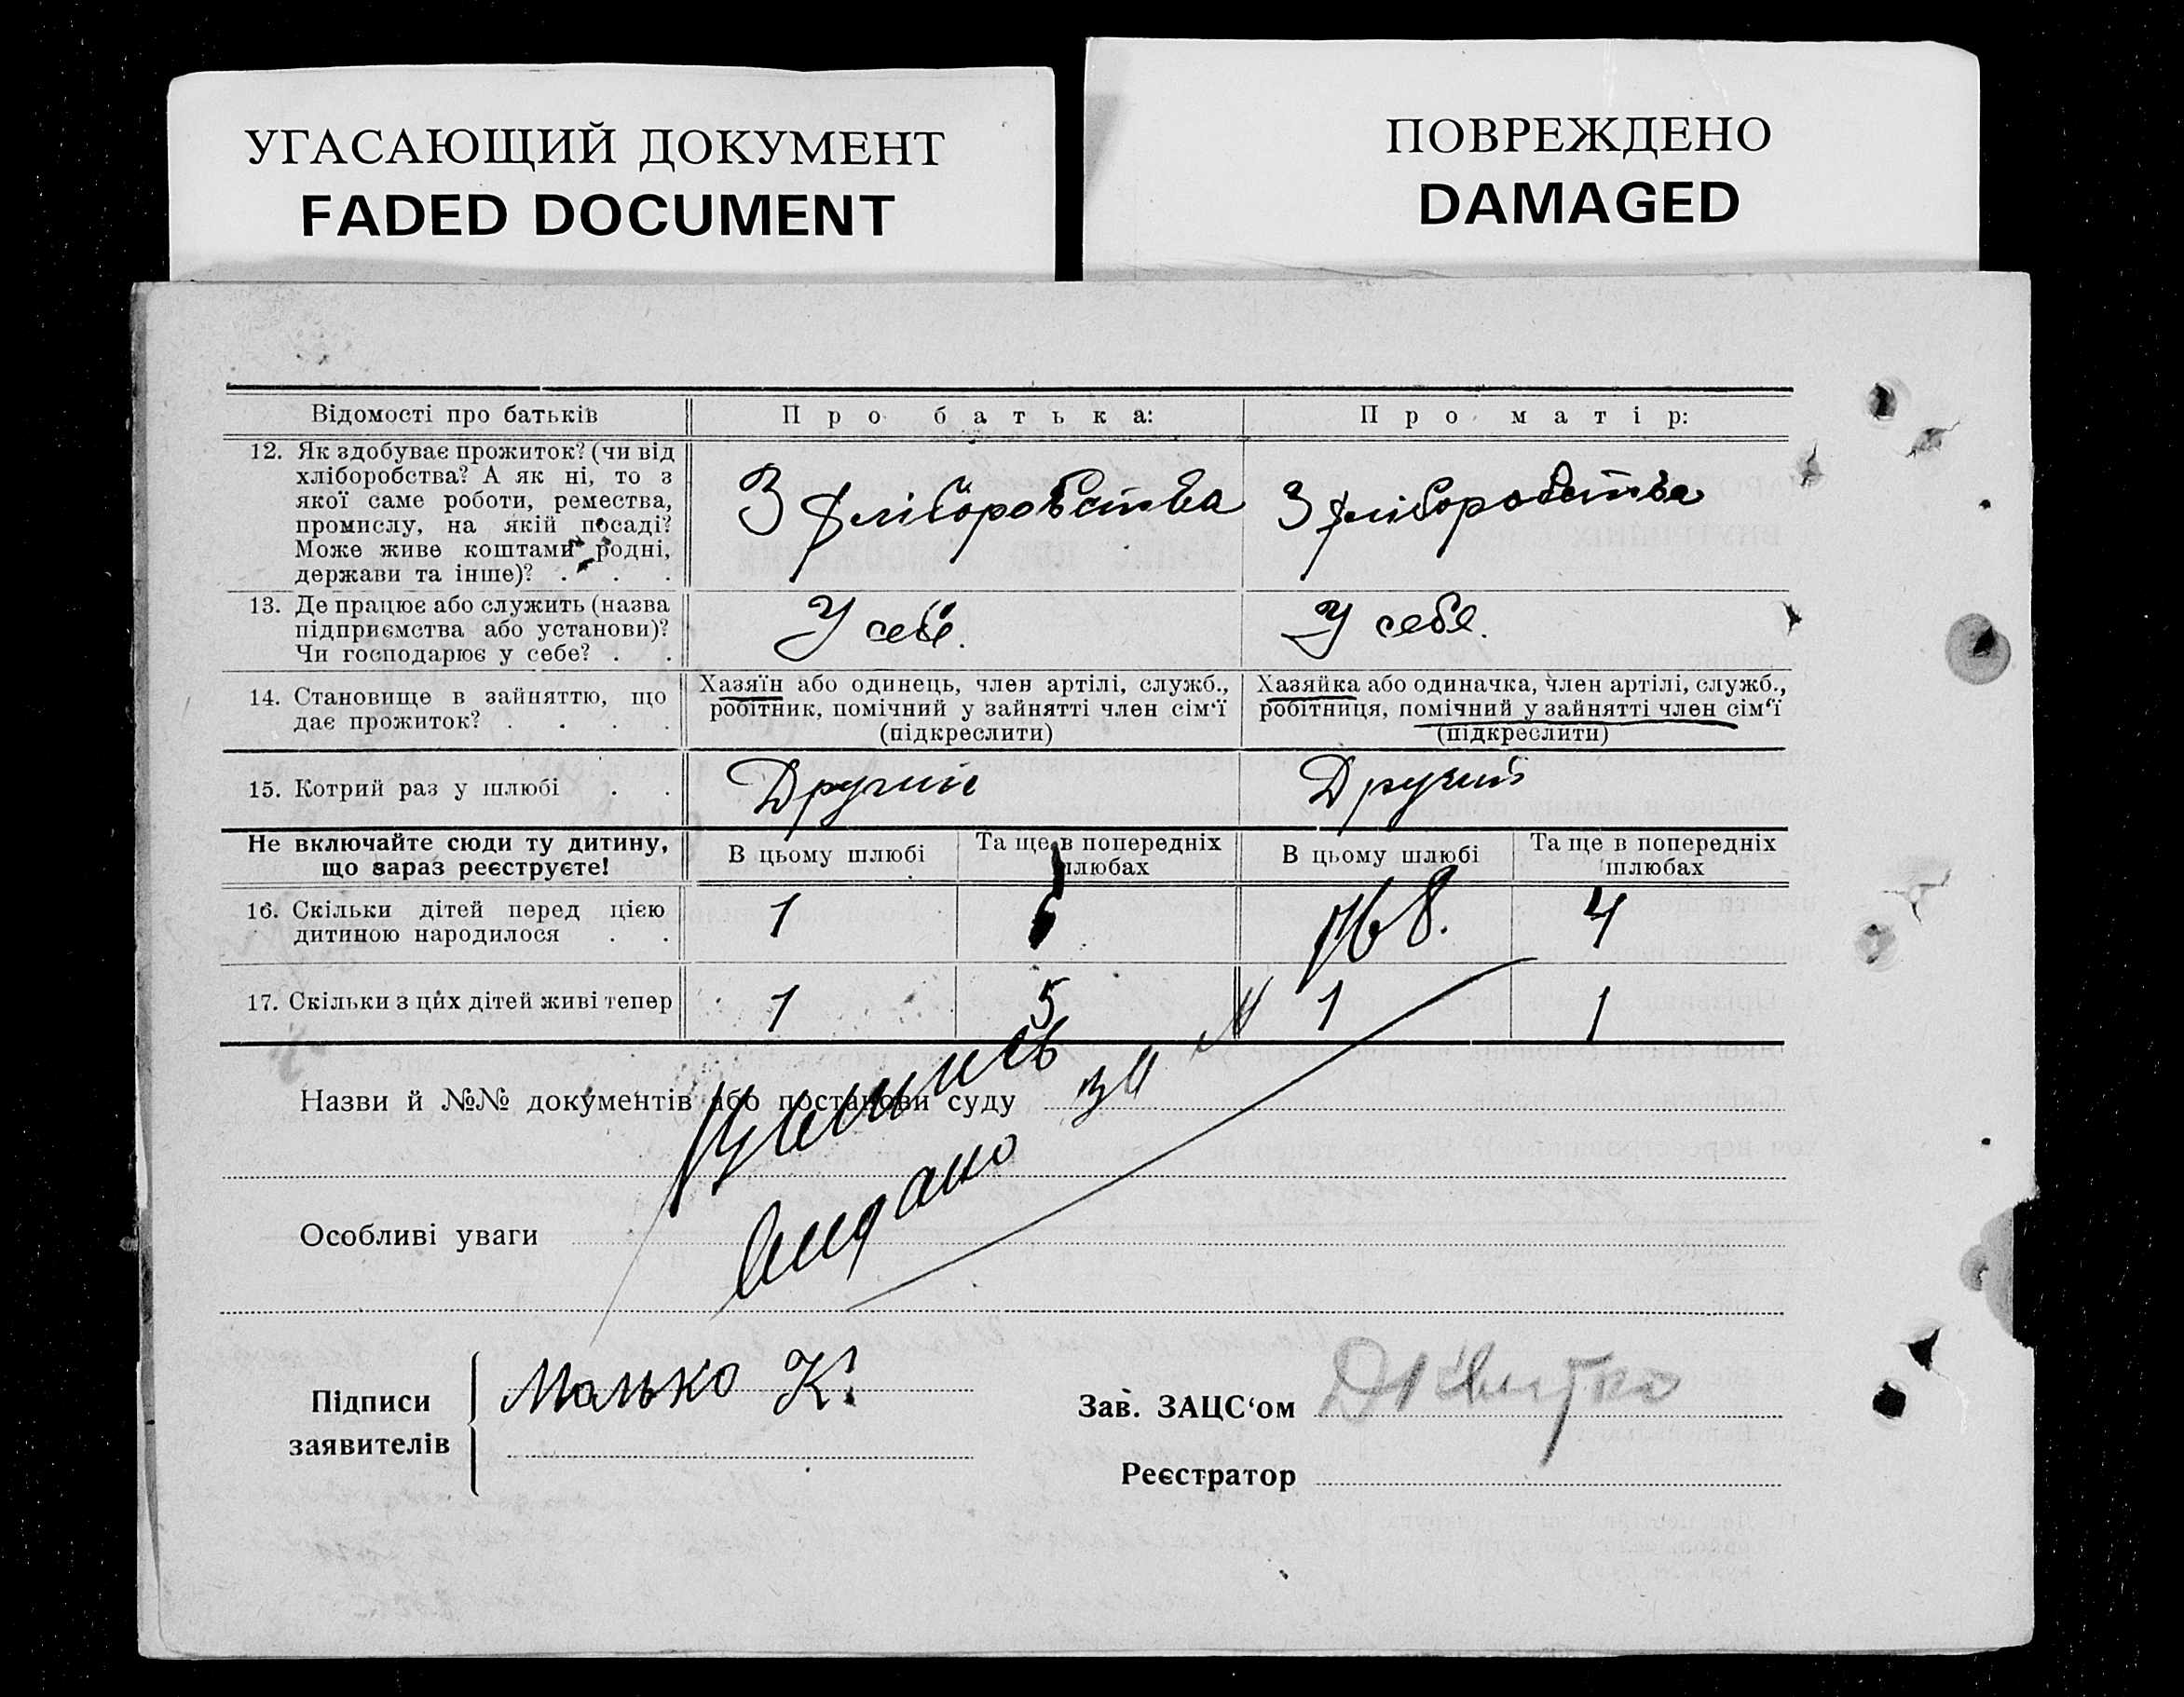 УГАСАЮЩИЙ ДОКУМЕНТ
FADED DOCUMENT
ПОВРЕЖДЕНО
DAMAGED
Відомості про батьків
Про батька:
Про матір:
12. Як здобуває прожиток? (чи від
хліборобства? А як ні, то з
якої саме роботи, ремества,
промислу, на якій посаді?
Може живе коштами родні,
держави та інше)? . . .
З хліборобства
З хліборобства
13. Де працює або служить (назва
підприємства або установи)?
Чи господарює у себе? . .
У себе.
У себе.
14. Становище в зайняттю, що
дає прожиток? . . . .
Хазяїн або одинець, член артілі, служб.,
робітник, помічний у зайнятті член сім‘ї
(підкреслити)
Хазяйка або одиначка, член артілі, служб.,
робітниця, помічний у зайнятті член сім‘ї
(підкреслити)
15. Котрий раз у шлюбі . .
Другий
Другий
Не включайте сюди ту дитину,
що зараз реєструєте!
В цьому шлюбі
Та ще в попередніх
шлюбах
В цьому шлюбі
Та ще в попередніх
шлюбах
16. Скільки дітей перед цією
дитиною народилося . .
1
4
17. Скільки з цих дітей живі тепер
1
5
1
1
Назви й №№ документів або постанови суду
за №
Особливі уваги
видано
Підписи
заявителів
Малько К.
Зав. ЗАЦС‘ом
Реєстратор